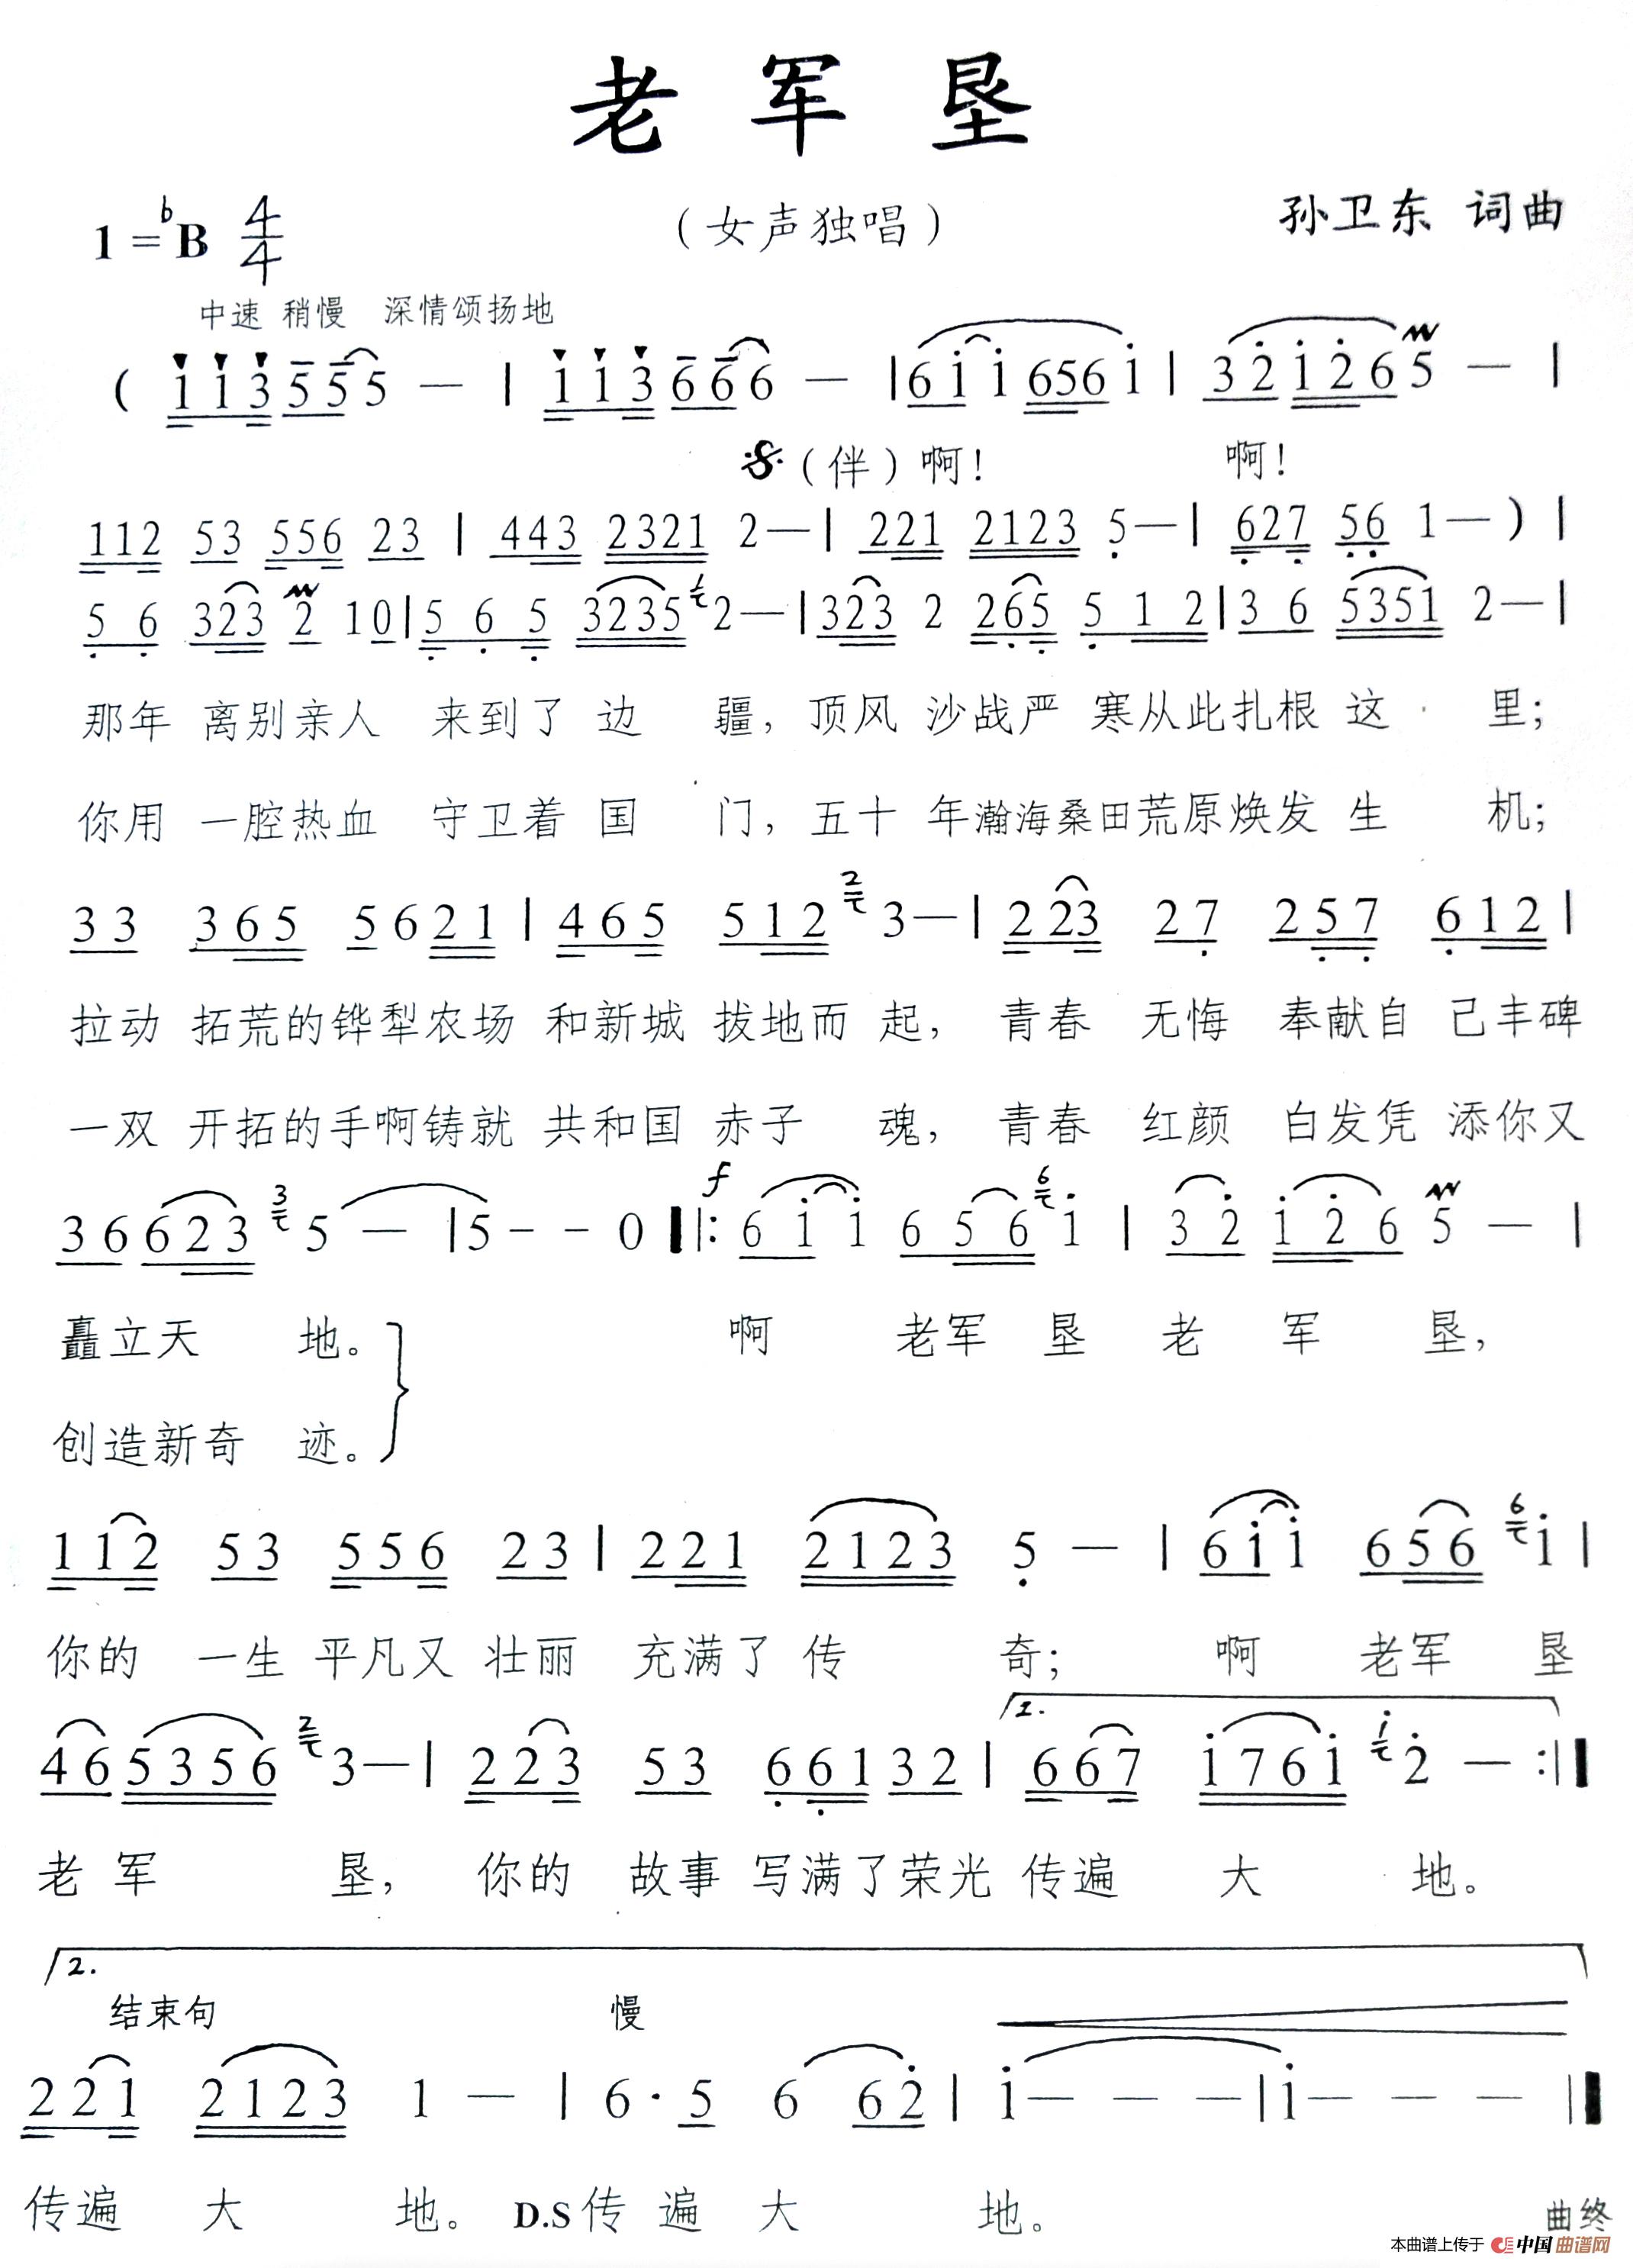 老军垦
1=♭B 4/4
（女声独唱）
孙卫东 词曲
中速 稍慢 深情颂扬地
( 1 1 3 5 5 5 — | 1 1 3 6 6 6 — | 6 i i 6 5 6 i | 3 2 1 2 6 5 — |
（伴）啊！ 啊！
112 53 556 23 | 443 2321 2 — | 221 2123 5 — | 627 56 1 — ) |
5 6 323 2 10 | 5 6 5 3235 2 — | 323 2 265 5 1 2 | 3 6 5351 2 — |
那年 离别亲人 来到了 边 疆，顶风 沙战严 寒从此扎根 这 里；
你用 一腔热血 守卫着 国 门，五十 年瀚海桑田荒原焕发 生 机；
33 365 5 6 21 | 465 512 2 3 — | 2 23 27 257 612 |
拉动 拓荒的铧犁农场 和新城 拔地而 起，青春 无悔 奉献自 己丰碑
一双 开拓的手啊铸就 共和国 赤子 魂，青春 红颜 白发凭 添你又
3 6 6 2 3 3 5 — | 5 - - 0 |: f 6 i i 6 5 6 6 i | 3 2 1 2 6 5 — |
矗立天 地。 啊 老军 垦 老 军 垦，
创造新奇 迹。
112 53 556 23 | 221 2123 5 — | 6 i i 656 6 i |
你的 一生 平凡又 壮丽 充满了 传 奇； 啊 老军 垦
1.
46 5356 2 3 — | 223 53 661 32 | 667 i76i i 2 — :|
老 军 垦，你的 故事 写满了荣光 传遍 大 地。
2.
结束句 慢
221 2123 1 — | 6 · 5 6 62 | i — — — | i — — — |
传遍 大 地。 D.S 传 遍 大 地。 曲终
本曲谱上传于 中国曲谱网